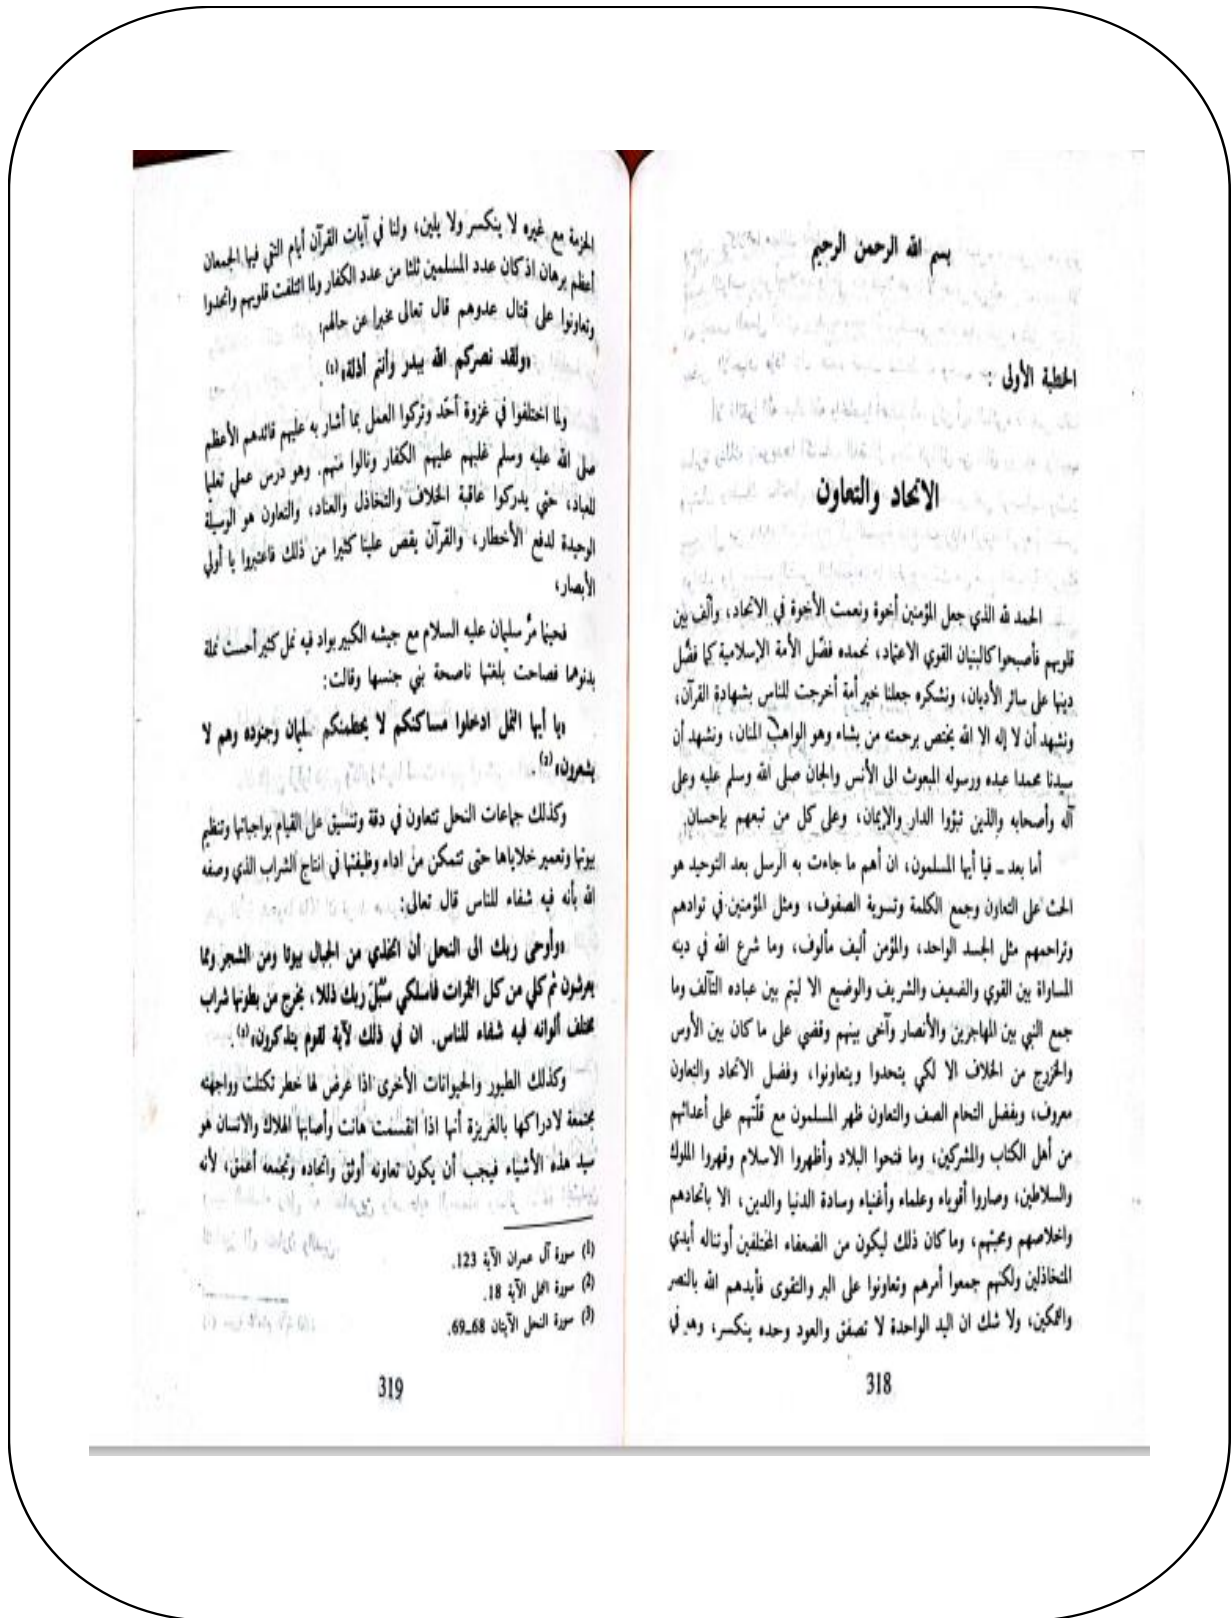 بسم الله الرحمن الرحيم
الخطبة الأولى :
الاتحاد والتعاون
الحمد لله الذي جعل المؤمنين أخوة ونعمت الأخوة في الاتحاد، وآلف بين
قلوبهم فأصبحوا كالبنيان القوي الاعتماد، نحمده ففضّل الأمة الإسلامية كما فضّل
دينها على سائر الأديان، ونشكره جعلنا خير أمة أخرجت للناس بشهادة القرآن،
ونشهد أن لا إله الا الله يختص برحمته من يشاء وهو الواهب المنان، ونشهد أن
سيدنا محمدا عبده ورسوله المبعوث الى الأنس والجان صلى الله وسلم عليه وعلى
آله وأصحابه والذين تبوّوا الدار والإيمان، وعلى كل من تبعهم بإحسان.
أما بعد ــ فيا أيها المسلمون، ان أهم ما جاءت به الرسل بعد التوحيد هو
الحث على التعاون وجمع الكلمة وتسوية الصفوف، ومثل المؤمنين في توادهم
وتراحمهم مثل الجسد الواحد، والمؤمن أليف مألوف، وما شرع الله في دينه
المساواة بين القوي والضعيف والشريف والوضيع الا ليتم بين عباده التآلف وما
جمع النبي بين المهاجرين والأنصار وآخى بينهم وقضي على ما كان بين الأوس
والخزرج من الخلاف الا لكي يتحدوا ويتعاونوا، وفضل الاتحاد والتعاون
معروف، وبفضل التحام الصف والتعاون ظهر المسلمون مع قلّتهم على أعدائهم
من أهل الكتاب والمشركين، وما فتحوا البلاد وأظهروا الاسلام وقهروا الملوك
والسلاطين، وصاروا أقوياء وعلماء وأغنياء وسادة الدنيا والدين، الا باتحادهم
واخلاصهم ومحبتهم، وما كان ذلك ليكون من الضعفاء المختلفين أو تناله أيدي
المتخاذلين ولكنهم جمعوا أمرهم وتعاونوا على البر والتقوى فأيدهم الله بالنصر
والتمكين، ولا شك ان اليد الواحدة لا تصفق والعود وحده ينكسر، وهو في
318
الحزمة مع غيره لا ينكسر ولا يلين، ولنا في آيات القرآن أيام التي فيها الجمعان
أعظم برهان اذ كان عدد المسلمين ثلثا من عدد الكفار ولما ائتلفت قلوبهم واتحدوا
وتعاونوا على قتال عدوهم قال تعالى مخبرا عن حالهم:
«ولقد نصركم الله ببدر وأنتم أذلة»(1).
ولما اختلفوا في غزوة أحد وتركوا العمل بما أشار به عليهم قائدهم الأعظم
صلى الله عليه وسلم غلبهم عليهم الكفار ونالوا منهم. وهو درس عملي تعليما
للعباد، حتي يدركوا عاقبة الخلاف والتخاذل والعناد، والتعاون هو الوسيلة
الوحيدة لدفع الأخطار، والقرآن يقص علينا كثيرا من ذلك فاعتبروا يا أولي
الأبصار،
فحينما مرّ سليمان عليه السلام مع جيشه الكبير بواد فيه نمل كثير أحست نملة
بدنوهما فصاحت بلغتها ناصحة بني جنسها وقالت:
«يا أيها النمل ادخلوا مساكنكم لا يحطمنكم سليمان وجنوده وهم لا
يشعرون»(2).
وكذلك جماعات النحل تتعاون في دقة وتنسيق على القيام بواجباتها وتنظيم
بيوتها وتعمير خلاياها حتى تتمكن من اداء وظيفتها في انتاج الشراب الذي وصفه
الله بأنه فيه شفاء للناس قال تعالى:
«وأوحى ربك الى النحل أن اتخذي من الجبال بيوتا ومن الشجر ومما
يعرشون ثم كلي من كل الثمرات فأسلكي سبُّلَ ربك ذللا، يخرج من بطونها شراب
مختلف ألوانه فيه شفاء للناس. ان في ذلك لآية لقوم يتذكرون»(3).
وكذلك الطيور والحيوانات الأخرى اذا عرض لها خطر تكتلت وواجهته
مجتمعة لادراكها بالغريزة أنها اذا انقسمت هانت وأصابها الهلاك والانسان هو
سيد هذه الأشياء فيجب أن يكون تعاونه أوثق واتحاده وتجمعه أعمق، لأنه
(1) سورة آل عمران الآية 123.
(2) سورة النمل الآية 18.
(3) سورة النحل الآيتان 68ــ69.
319